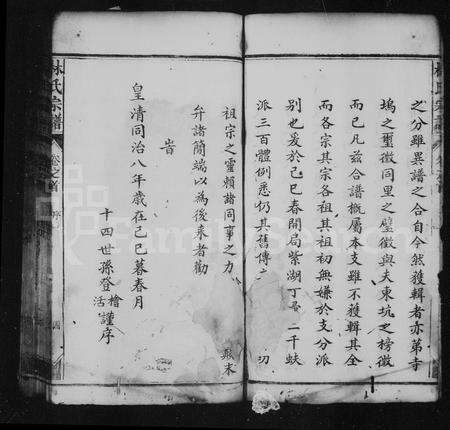 之分雖異譜之合自今然獲輯者亦第寺
塢之璽微同里之璧徵與夫東坑之榜徵
而已凡兹合譜概屬本支雖不獲輯其全
而各宗其宗各祖其祖初無嫌於支分派
別也爰於己巳春開局紫湖丁 二千蚨
派三百體例悉仍其舊傳 切
祖宗之靈賴諸同事之力 顛末
弁諸簡端以為後來者勸
旹
皇清同治八年歲在己巳暮春月
十四世孫登
檜
活
謹序
林氏宗譜 卷之首 序 四
林氏宗譜 卷之首
FamilySearch